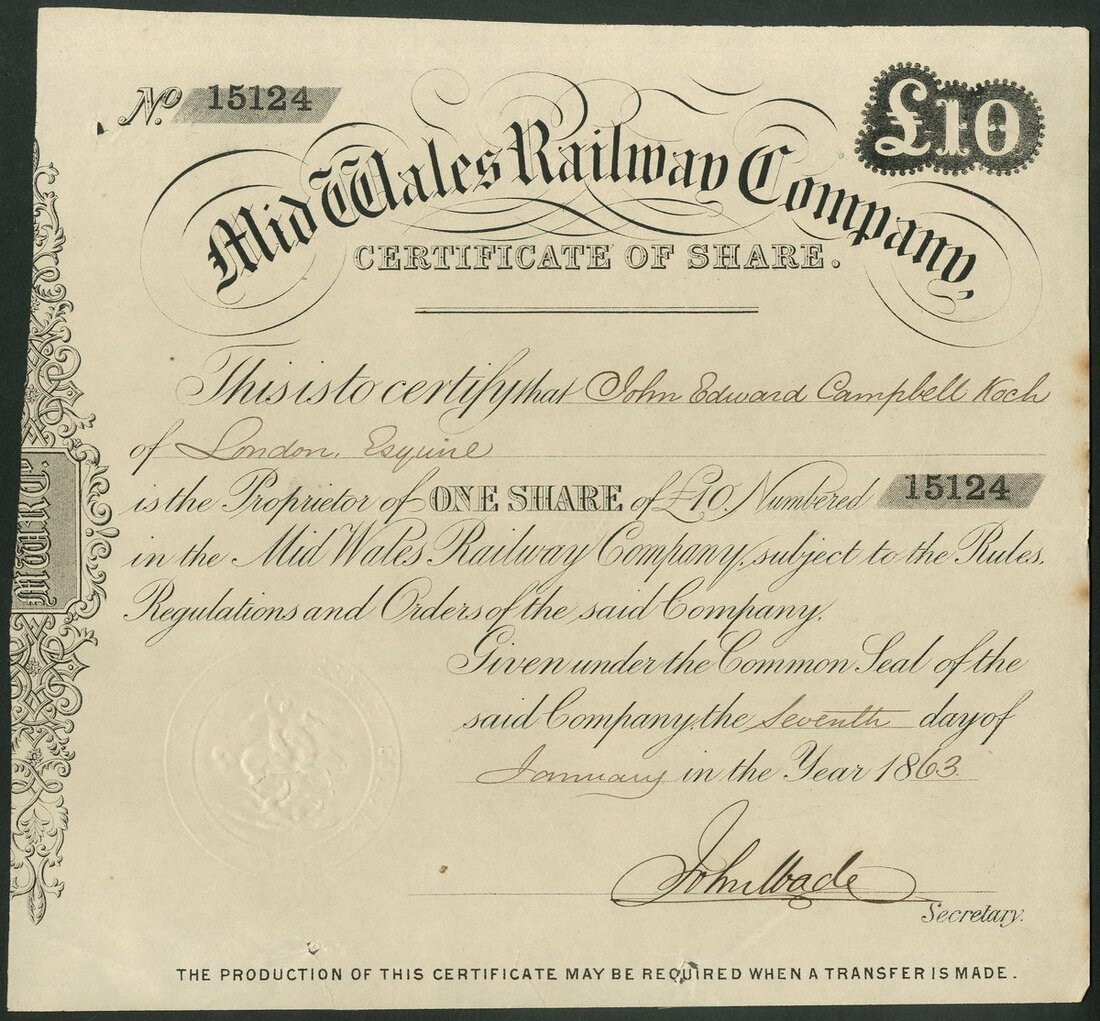 No. 15124
£10
Mid Wales Railway Company,
CERTIFICATE OF SHARE.
This is to certify that John Edward Campbell Koch
of London, Esquire
is the Proprietor of ONE SHARE of £10. Numbered 15124
in the Mid Wales Railway Company, subject to the Rules,
Regulations and Orders of the said Company.
Given under the Common Seal of the
said Company, the Seventh day of
January in the Year 1863.
John Wade
Secretary.
THE PRODUCTION OF THIS CERTIFICATE MAY BE REQUIRED WHEN A TRANSFER IS MADE.
M.W.R.C.